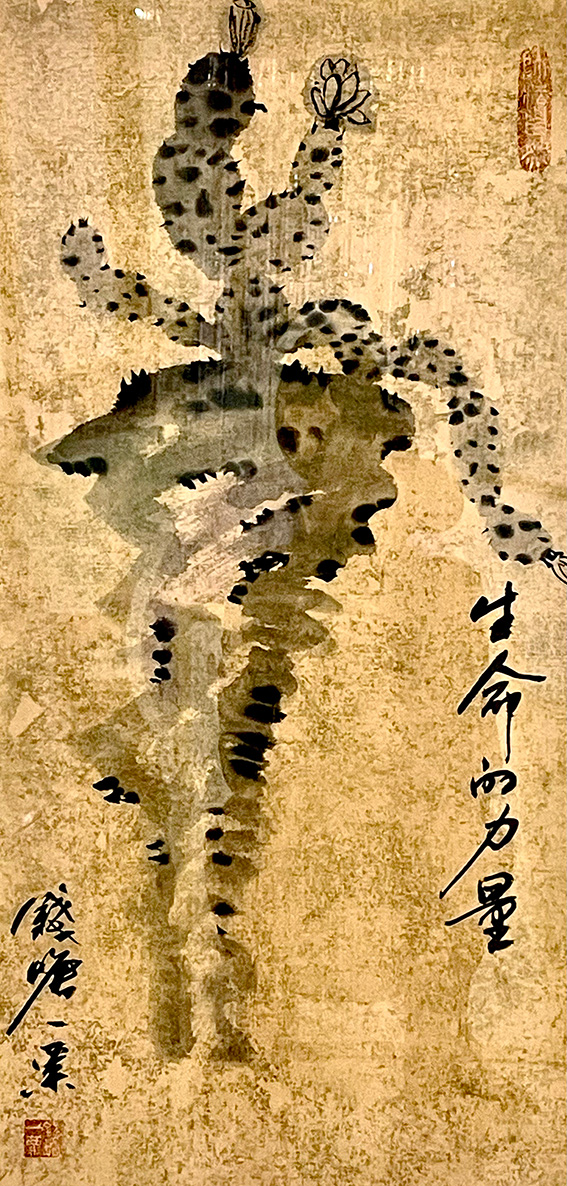 生命的力量
錢塘一粟